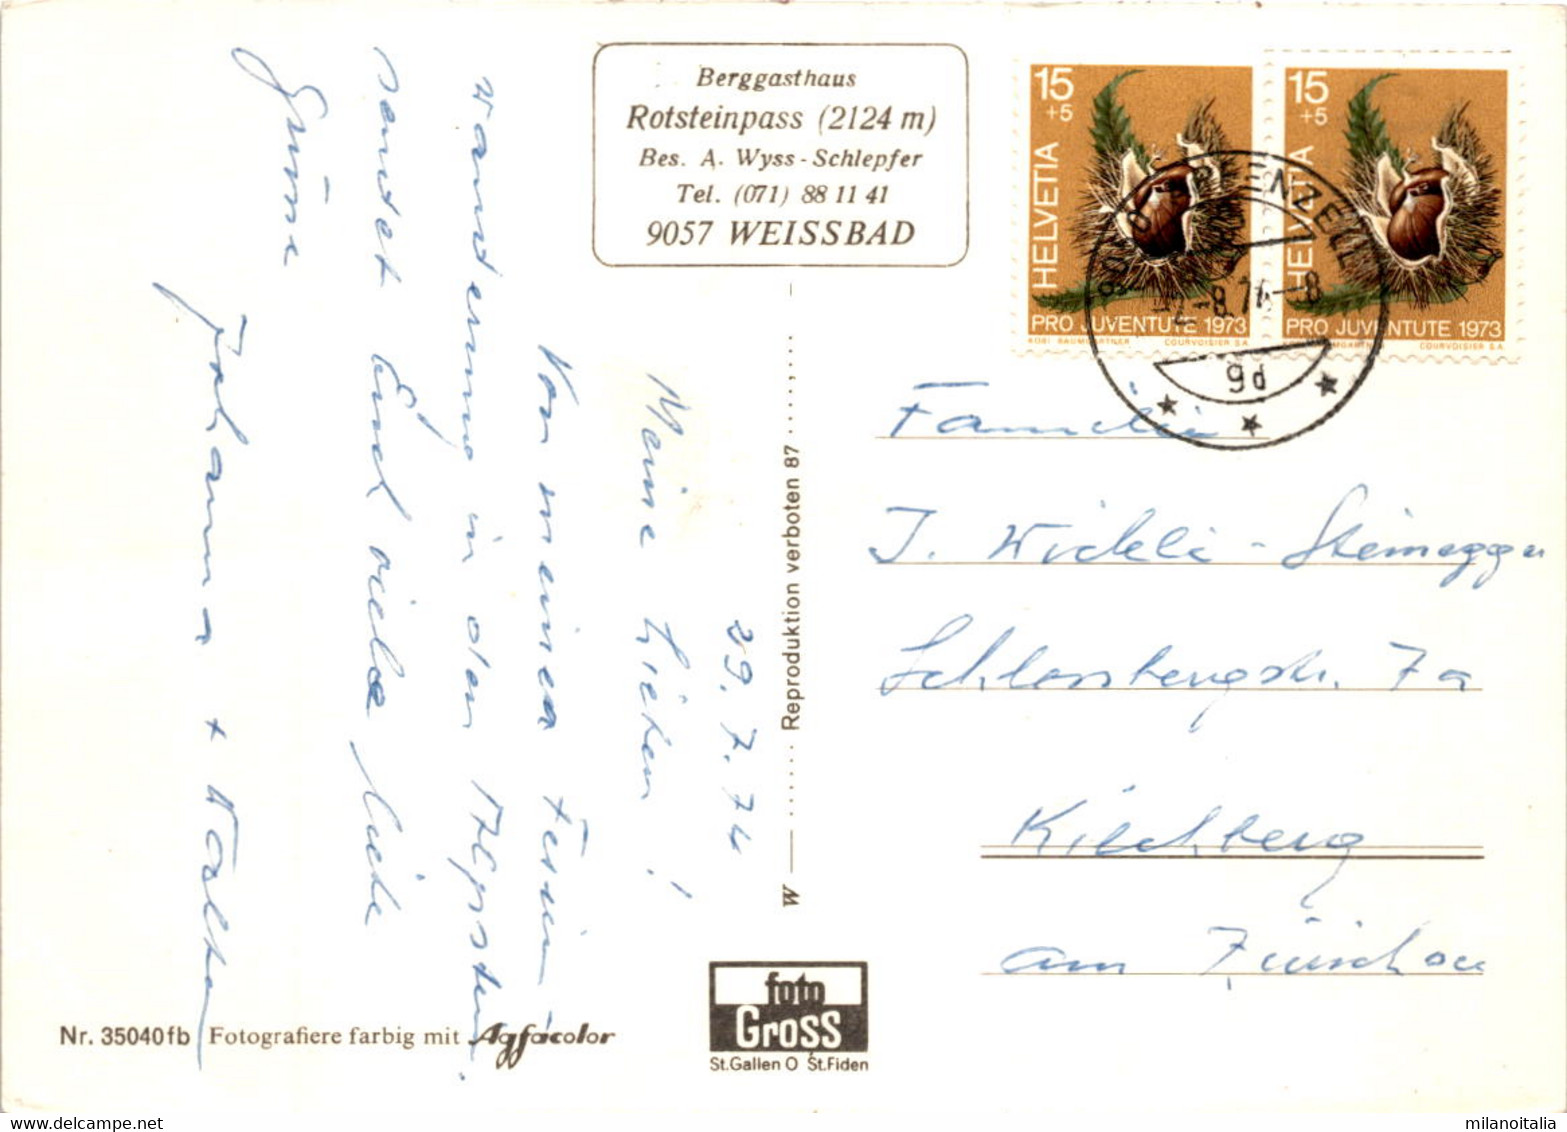 Berggasthaus
Rotsteinpass (2124 m)
Bes. A. Wyss - Schlepfer
Tel. (071) 88 11 41
9057 WEISSBAD
15
+5
HELVETIA
PRO JUVENTUTE 1973
KOBI BAUMGARTNER COURVOISIER S.A.
15
+5
HELVETIA
PRO JUVENTUTE 1973
COURVOISIER S.A.
APPENZELL
-8.74-8
9d
29. 7. 74
Meine Lieben!
Von meiner Ferien-
wanderung in der Alpstein
sendet Euch viele liebe
Grüsse
Johanna + Walter
Familie
J. Wickli - Steinegger
Schlossbergstr. 7a
Kilchberg
am Zürichsee
W Reproduktion verboten 87
foto
Gross
St.Gallen O St.Fiden
Nr. 35040fb Fotografiere farbig mit Agfacolor
milanoitalia